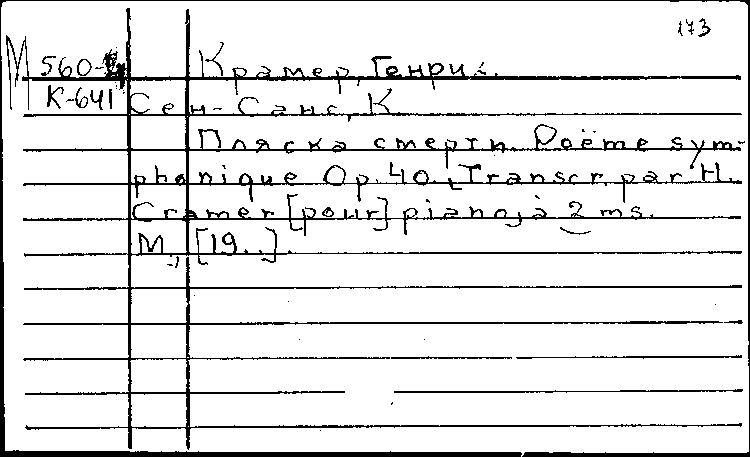 173
М 560-4 Крамер, Генрих.
К-641 Сен-Санс, К
Пляска смерти. Poëme sym-
phonique Op. 40. Transcr. par H.
Cramer [pour] piano, à 2 ms.
М., [19..].